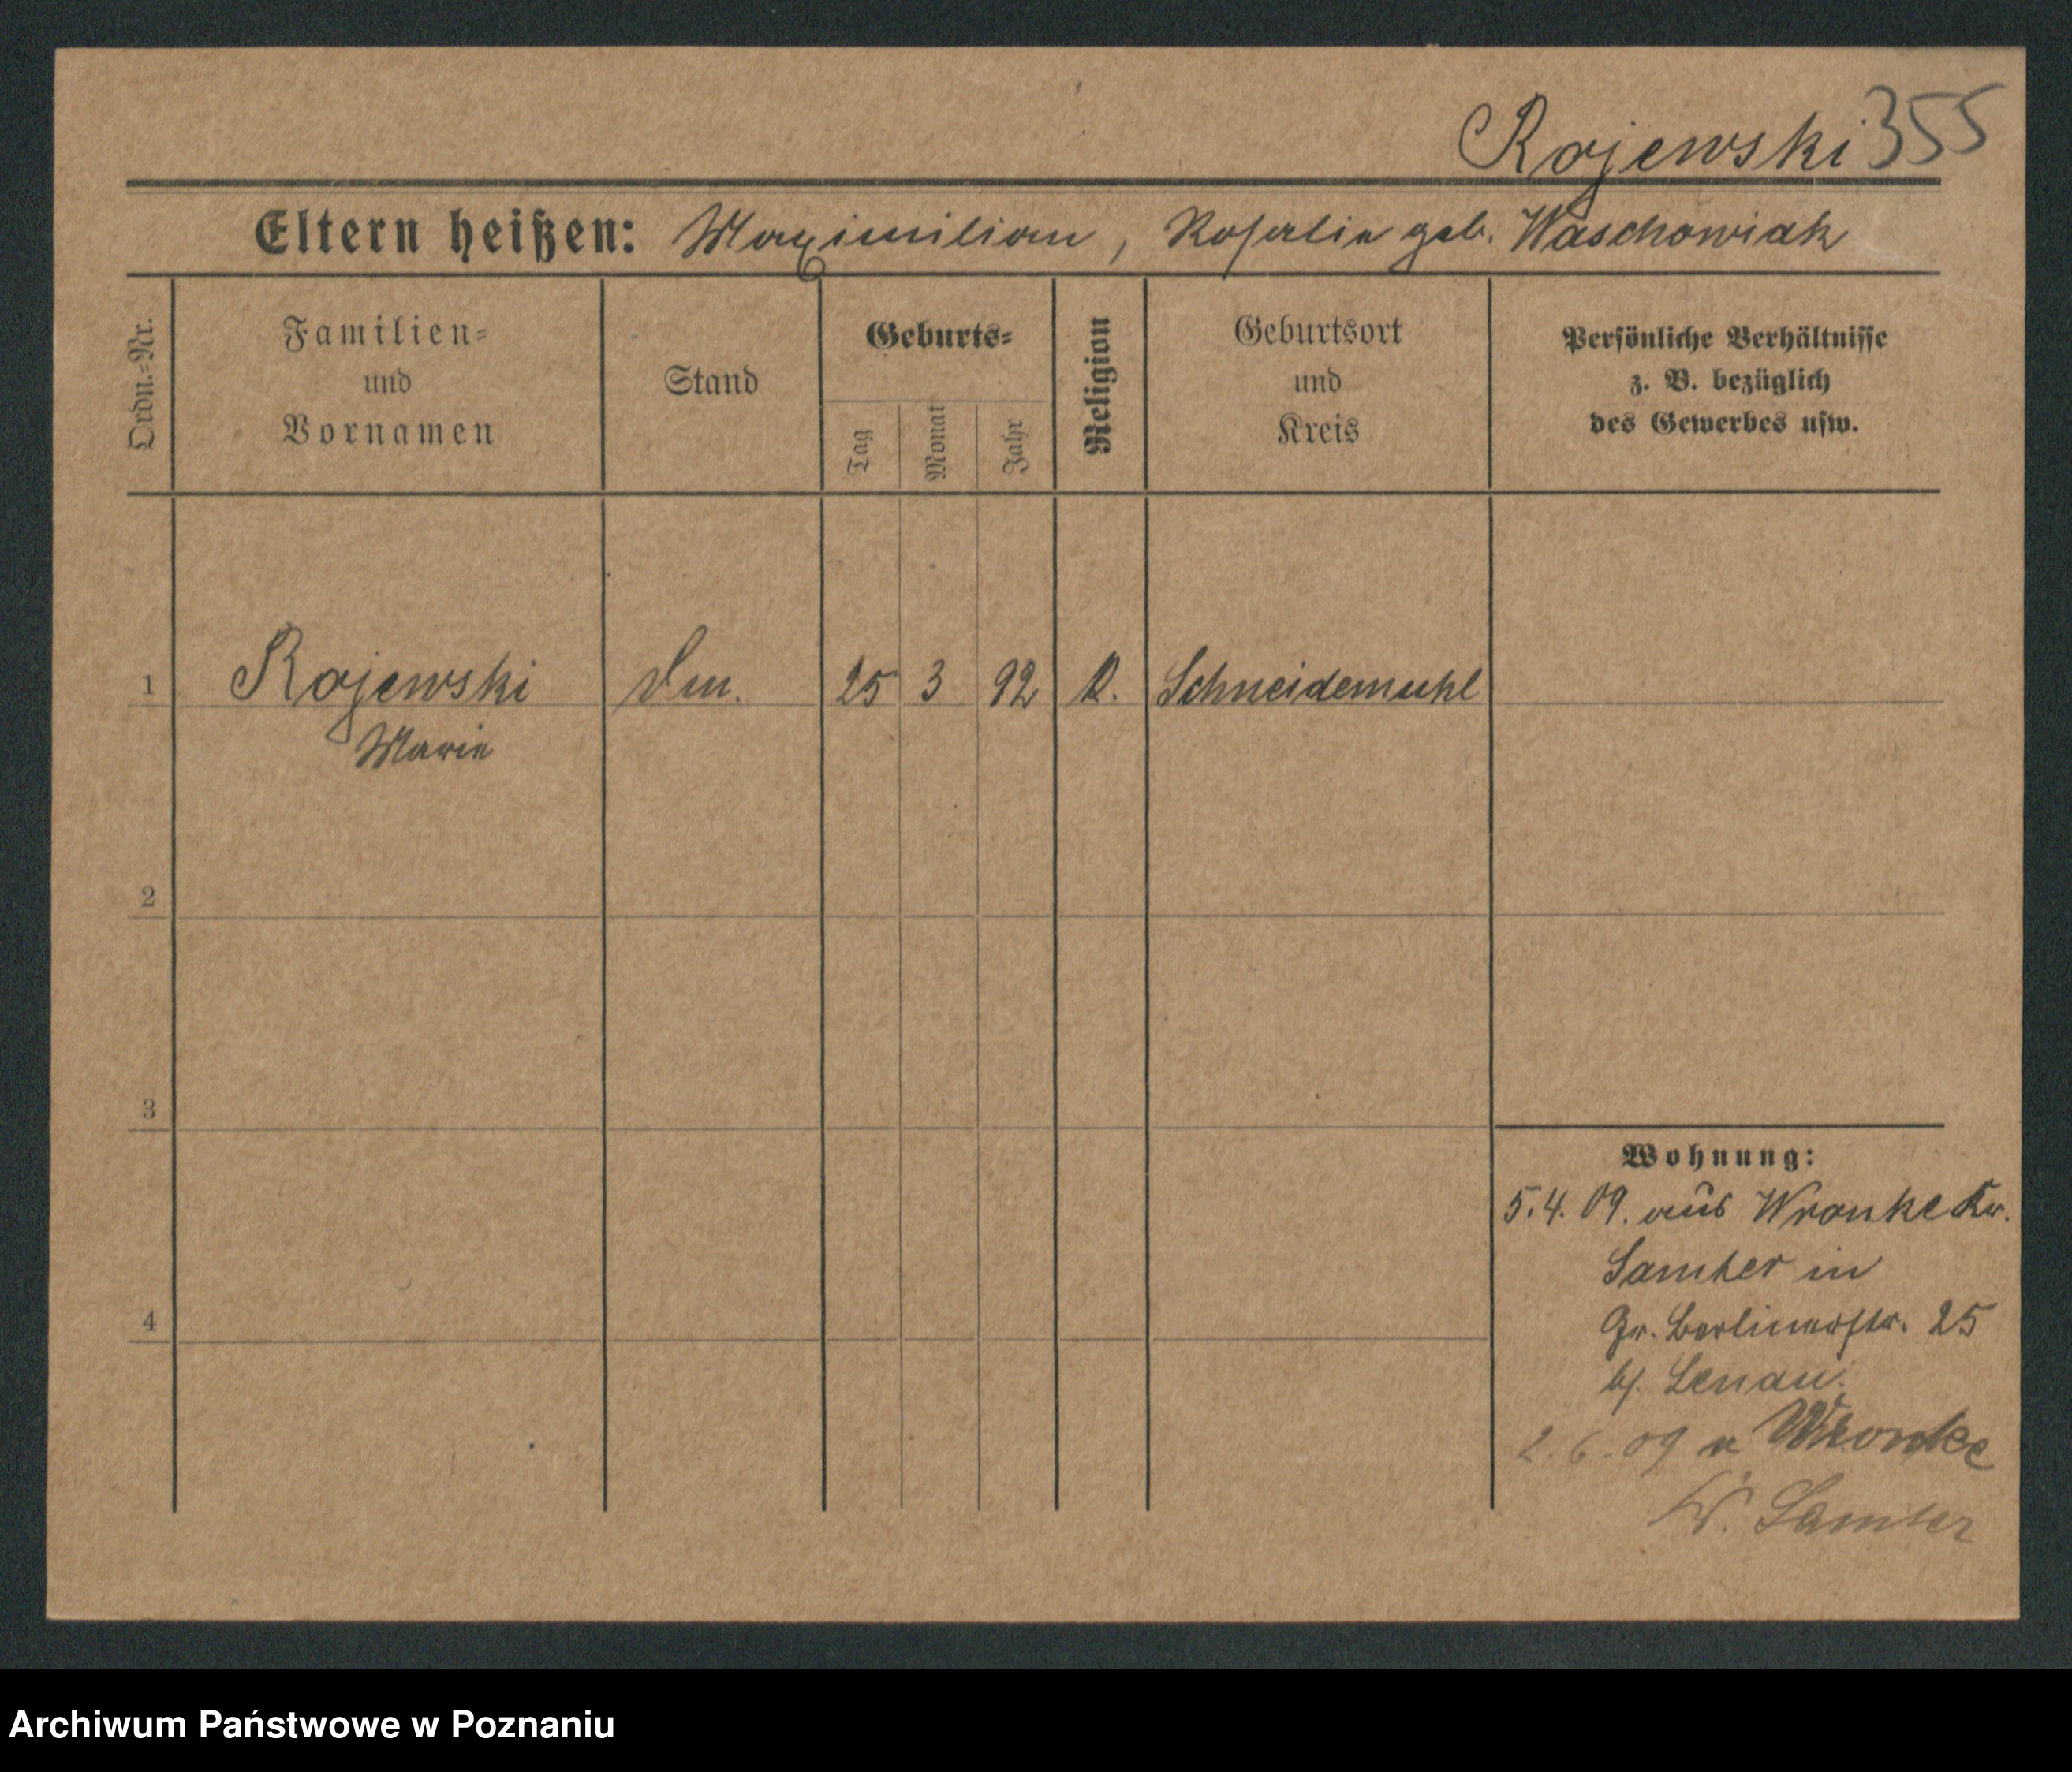 Rajewski 355
Eltern heißen: Maximilian, Rosalie geb. Waschowiak
Ordn.-Nr.
Familien-
und
Vornamen
Stand
Geburts-
Tag
Monat
Jahr
Religion
Geburtsort
und
Kreis
Persönliche Verhältnisse
z. B. bezüglich
des Gewerbes usw.
1 Rajewski 25 3 92 K. Schneidemuhl
Marie
2
3
4
Wohnung:
5.4.09. aus Wronke Kr.
Samter in
Gr. Berlinerstr. 25
b/. Lenau.
2.6.09 n Wronke
Kr. Samter
Archiwum Państwowe w Poznaniu